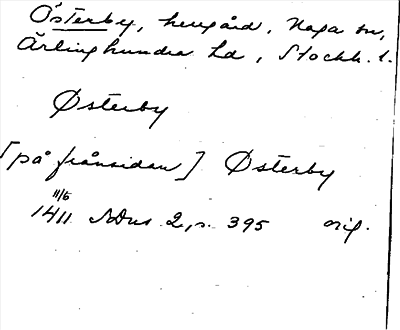 Österby, herrgård, Haga sn,
Ärlinghundra hd, Stockh. l.
Østerby
[på frånsidan] Østerby
11/5
1411 SDns 2, s. 395 orig.